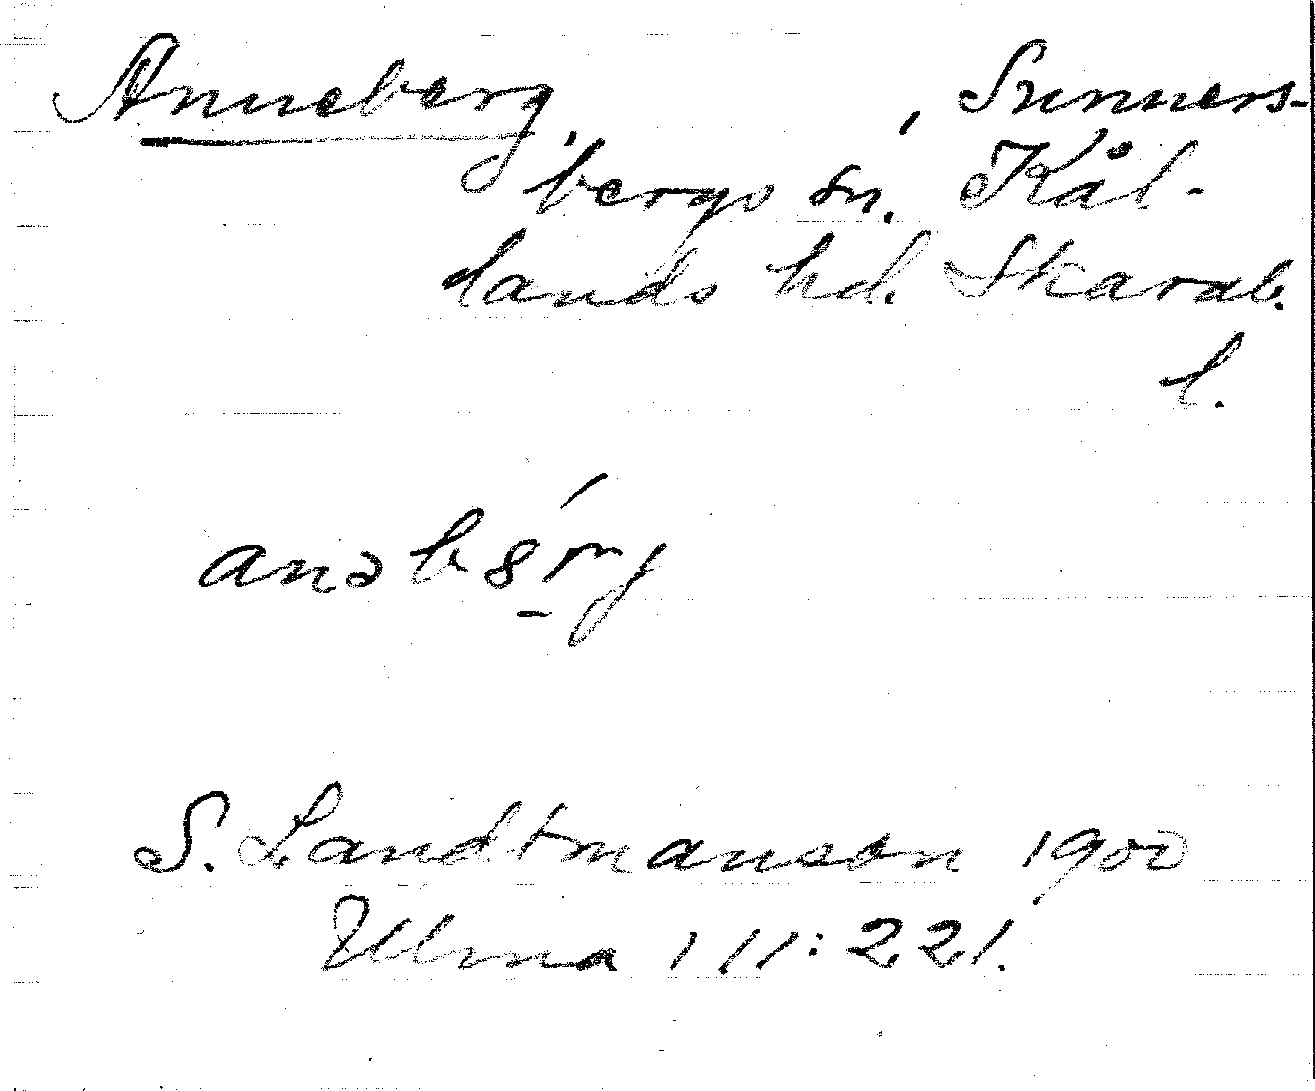 Anneberg, , Sunners-
bergs sn. Kål-
lands hd. Skarab.
l.
S. Landtmanson 1900
Ulma 111:221.